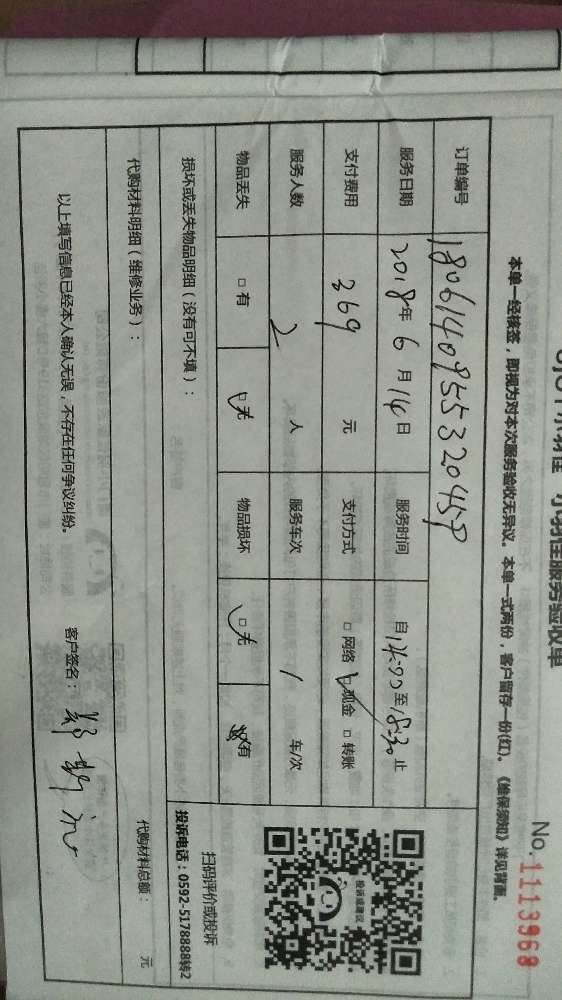 小羽佳服务验收单
No.1113968
本单一经核签，即视为对本次服务验收无异议。本单一式两份，客户留存一份(红)。《维保须知》详见背面。
订单编号
服务日期 2018年6月14日 服务时间 自14:00至18:30止
支付费用 369 元 支付方式 □ 网络 □ 现金 □ 转账
服务人数 2 人 服务车次 1 车/次
物品丢失 □ 有 □ 无 物品损坏 □ 无 有
损坏或丢失物品明细（没有可不填）：
代购材料明细（维修业务）：
代购材料总额： 元
以上填写信息已经本人确认无误，不存在任何争议纠纷。 客户签名：
投诉或建议
扫码评价或投诉
投诉电话：0592-5178888转2